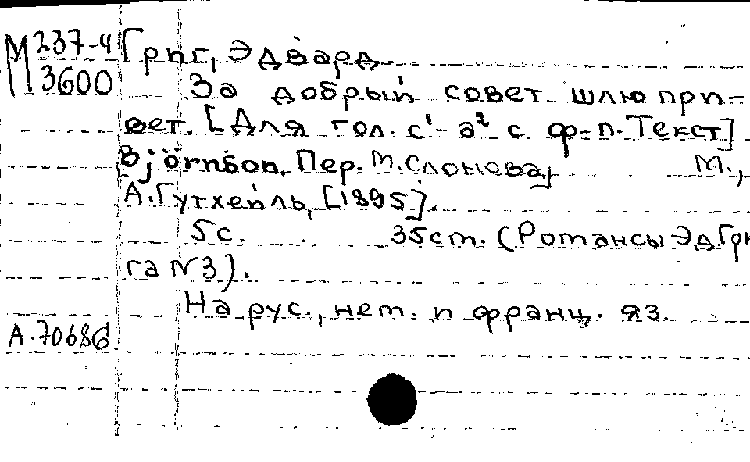 М 237-4
3600
Григ, Эдвард
За добрый совет шлю при-
вет. [Для гол. c¹ - a² с ф-п. Текст]
Björnson, Пер. М. Слонова, М.,
А. Гутхейль, [1895].
5 с. 35 cm. (Романсы Эд Гри
га № 3).
На рус., нем. и франц. яз.
А. 70686